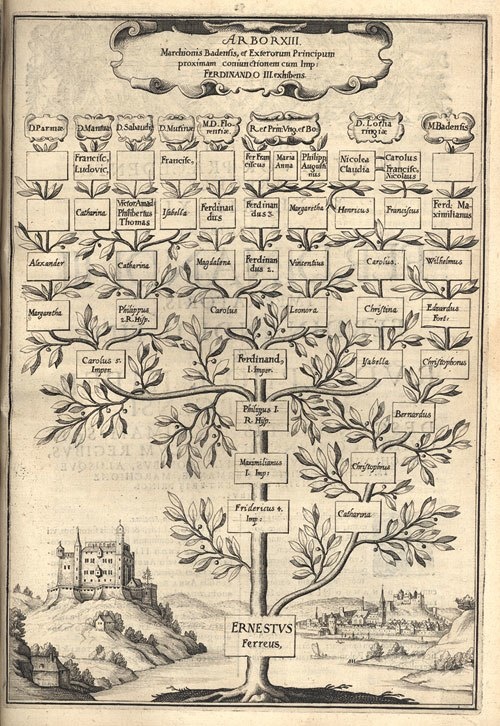 ARBOR XIII.
Marchionis Badensis, et Exterorum Principum
proximam coniunctionem cum Imp:
FERDINANDO III. exhibens.
D. Parmæ
D. Mantuæ
D. Sabaudiæ
D. Mutinæ
M.D. Flo-
rentiæ
R. et Prin: Vng. et Bo:
D. Lotha
ringiæ
M. Badensis
Francisc,
Ludovic,
Francisc,
Fer Fran
ciscus
Maria
Anna
Philipp
Augusti
nus
Nicolea
Claudia
Carolus
Francisc,
Nicolaus
Catharina
Victor Amad
Philibertus
Thomas
Isabella
Ferdinan
dus
Ferdinan
dus 3.
Margaretha
Henricus
Franciscus
Ferd: Ma-
ximilianus
Alexander
Catharina
Magdalena
Ferdinan
dus 2.
Vincentius
Carolus.
Wilhelmus
Margaretha
Philippus
2. R. Hisp.
Carolus
Leonora
Christina
Eduardus
Fort:
Carolus 5.
Imper.
Ferdinand,
1. Imper.
Isabella
Christophorus
Philipus 1.
R. Hisp.
Bernardus
Maximilianus
I. Imp:
Christophorus
Fridericus 4.
Imp:
Catharina
ERNESTVS
Ferreus,